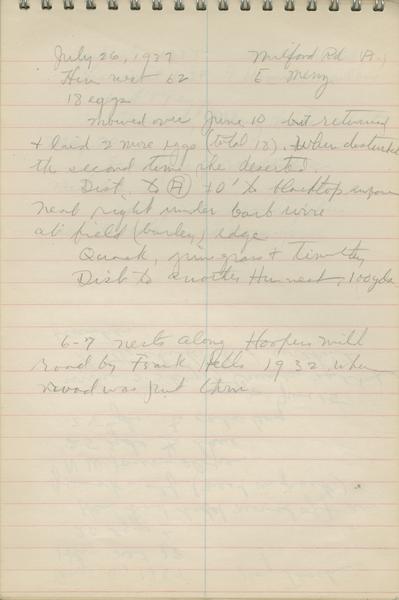 July 26, 1937 Milford Rd (A)
Hun nest 62 E Menz
18 eggs
mowed over June 10 but returned
& laid 2 more eggs (total 18). When disturbed
the second time she deserted.
Dist. to (A) 10' to blacktop
nest right under barb wire
at field (barley) edge
Quack, june grass & Timothy
Dist to another Hun nest, 100 yds
6-7 nests along Hoopers Mill
road by Frank 1932 when
road was just